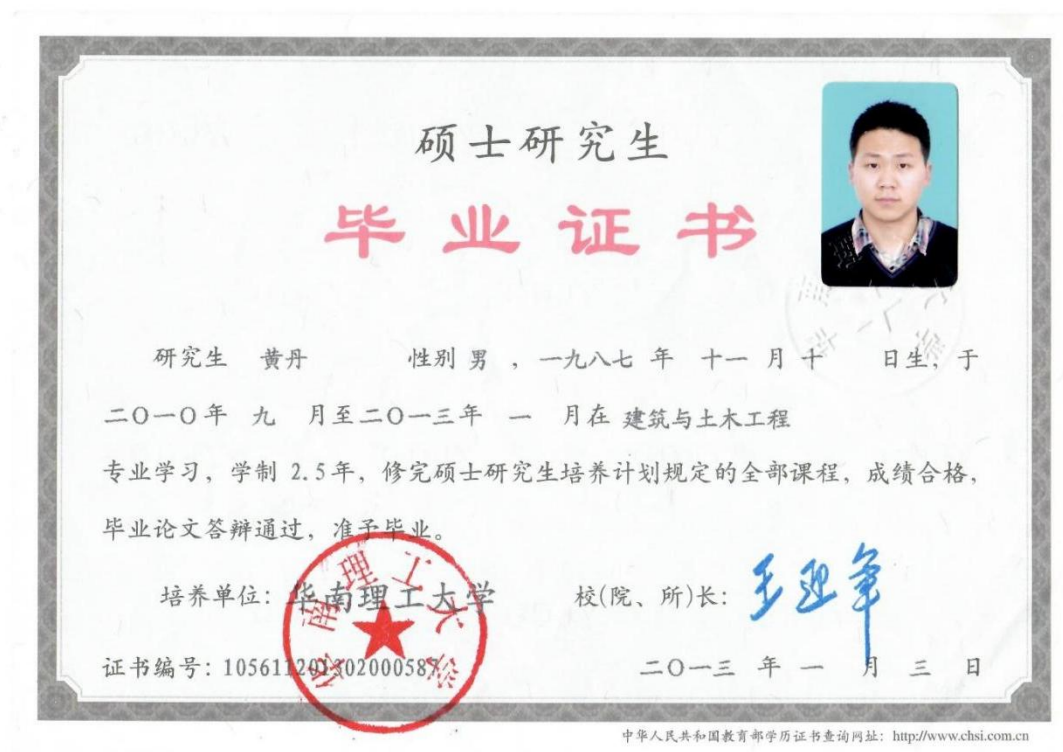 硕士研究生
毕业证书
研究生 黄丹 性别 男 ，一九八七 年 十一 月 十 日生，于
二〇一〇年 九 月至二〇一三年 一 月在 建筑与土木工程
专业学习，学制 2.5年，修完硕士研究生培养计划规定的全部课程，成绩合格，
毕业论文答辩通过，准予毕业。
培养单位：华南理工大学 校(院、所)长：王迎军
华南理工大学
证书编号：105611201302000587
二〇一三 年 一 月 三 日
中华人民共和国教育部学历证书查询网址：http://www.chsi.com.cn